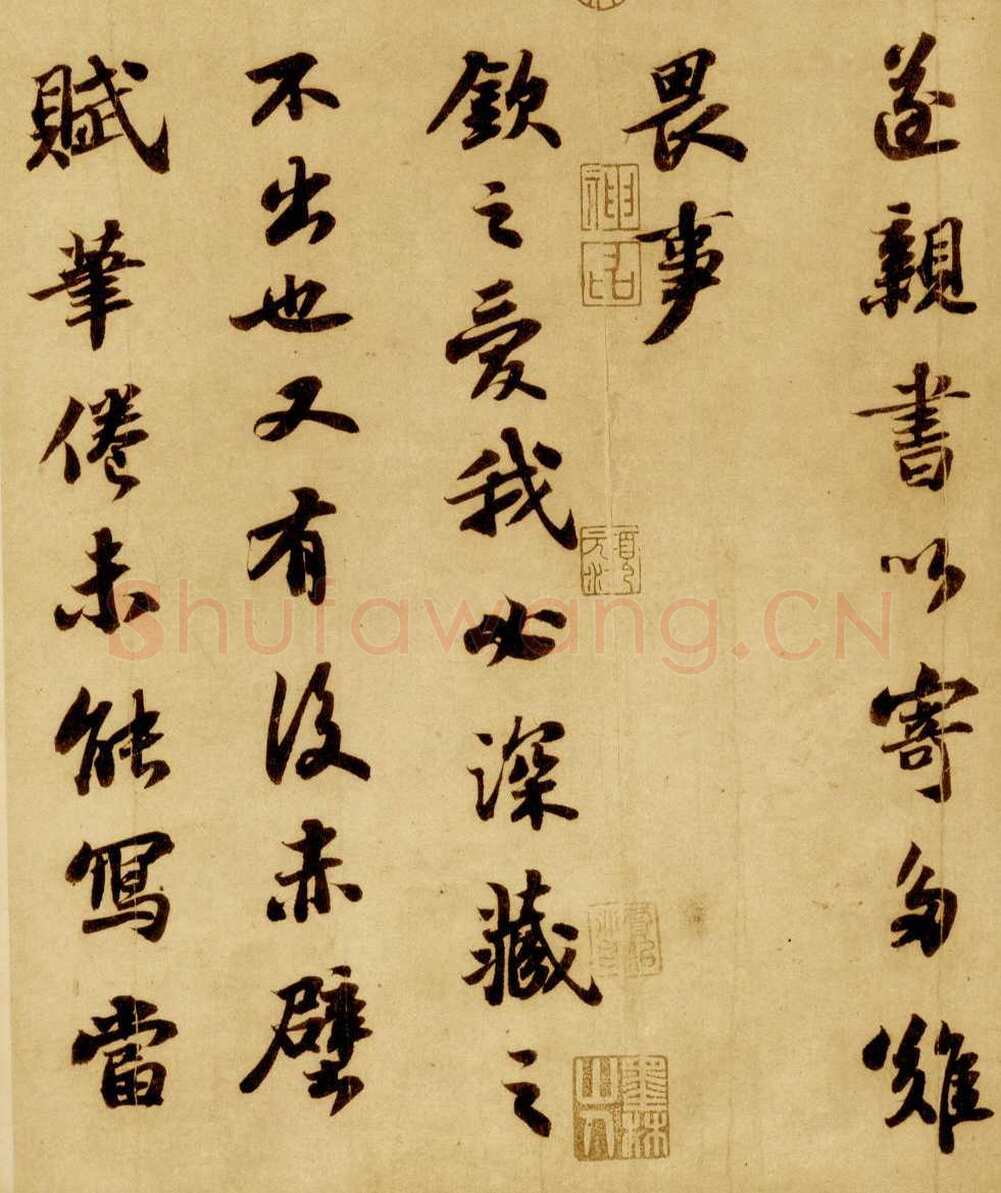 遂親書以寄多難
畏事
欽之愛我必深藏之
不出也又有後赤壁
賦筆倦未能寫當
神品
項元汴
墨林
Shufawang.CN